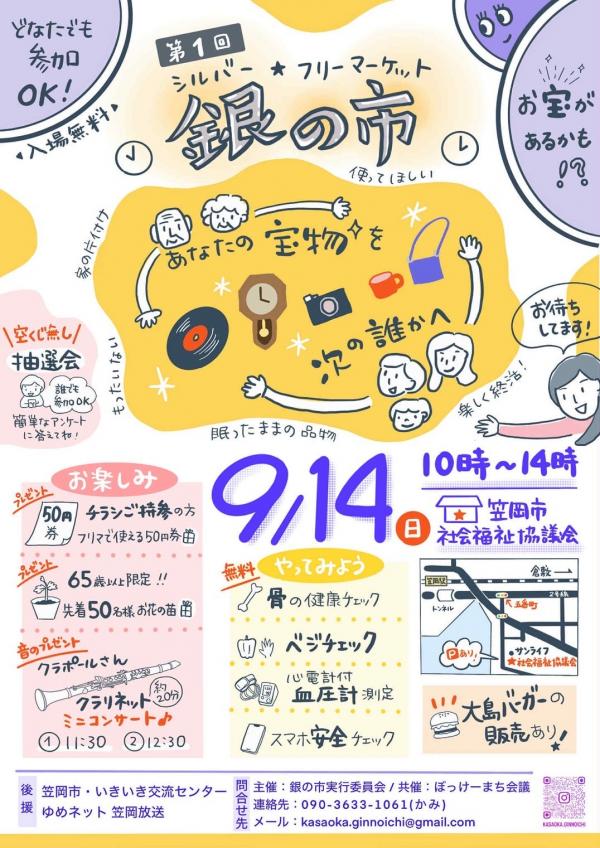 どなたでも
参加
OK!
入場無料
第1回
シルバー★フリーマーケット
銀の市
お宝が
あるかも
!?
使ってほしい
家の片付け
あなたの宝物を
次の誰かへ
もったいない
眠ったままの品物
楽しく終活!
お待ち
してます!
空くじ無し
抽選会
誰でも
参加OK
簡単なアンケート
に答えてね!
9/14日
10時～14時
笠岡市
社会福祉協議会
お楽しみ
プレゼント
50円
券
チラシご持参の方
フリマで使える50円券
プレゼント
65歳以上限定!!
先着50名様お花の苗
音のプレゼント
クラポールさん
クラリネット
約
20分
ミニコンサート♪
①11:30 ②12:30
無料
やってみよう
骨の健康チェック
ベジチェック
心電計付
血圧計測定
スマホ安全チェック
笠岡駅
倉敷→
トンネル
2号線
五番町
Pあり!
サンライフ
★社会福祉協議会
大島バーガーの
販売あり!
後援
笠岡市・いきいき交流センター
ゆめネット 笠岡放送
問合せ先
主催：銀の市実行委員会 / 共催：ぼっけーまち会議
連絡先：090-3633-1061(かみ)
メール：kasaoka.ginnoichi@gmail.com
KASAOKA.GINNOICHI